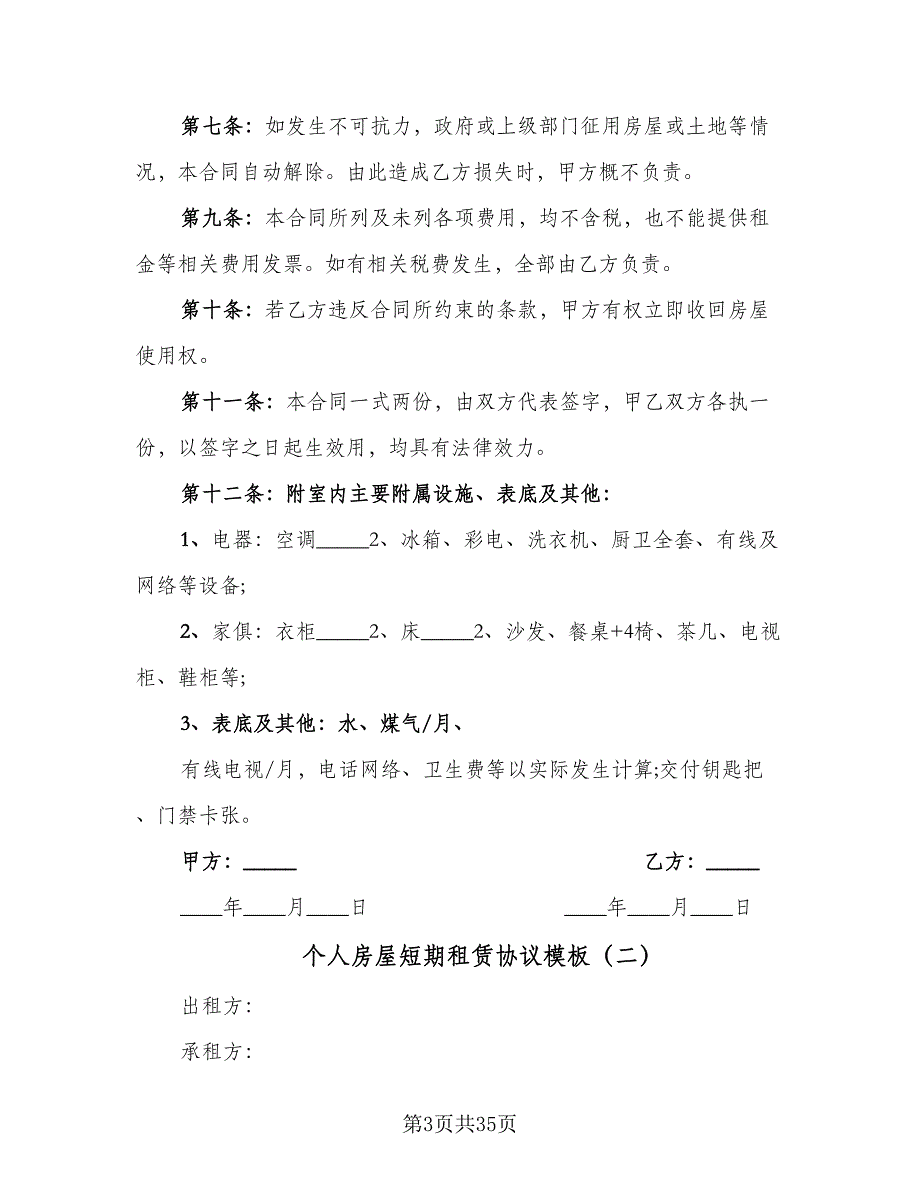 第七条：如发生不可抗力，政府或上级部门征用房屋或土地等情
况，本合同自动解除。由此造成乙方损失时，甲方概不负责。
第九条：本合同所列及未列各项费用，均不含税，也不能提供租
金等相关费用发票。如有相关税费发生，全部由乙方负责。
第十条：若乙方违反合同所约束的条款，甲方有权立即收回房屋
使用权。
第十一条：本合同一式两份，由双方代表签字，甲乙双方各执一
份，以签字之日起生效用，均具有法律效力。
第十二条：附室内主要附属设施、表底及其他：
1、电器：空调_____2、冰箱、彩电、洗衣机、厨卫全套、有线及
网络等设备;
2、家俱：衣柜_____2、床_____2、沙发、餐桌+4椅、茶几、电视
柜、鞋柜等;
3、表底及其他：水、煤气/月、
有线电视/月，电话网络、卫生费等以实际发生计算;交付钥匙把
、门禁卡张。
甲方：_____ 乙方：_____
____年____月____日 ____年____月____日
个人房屋短期租赁协议模板（二）
出租方：
承租方：
第3页共35页